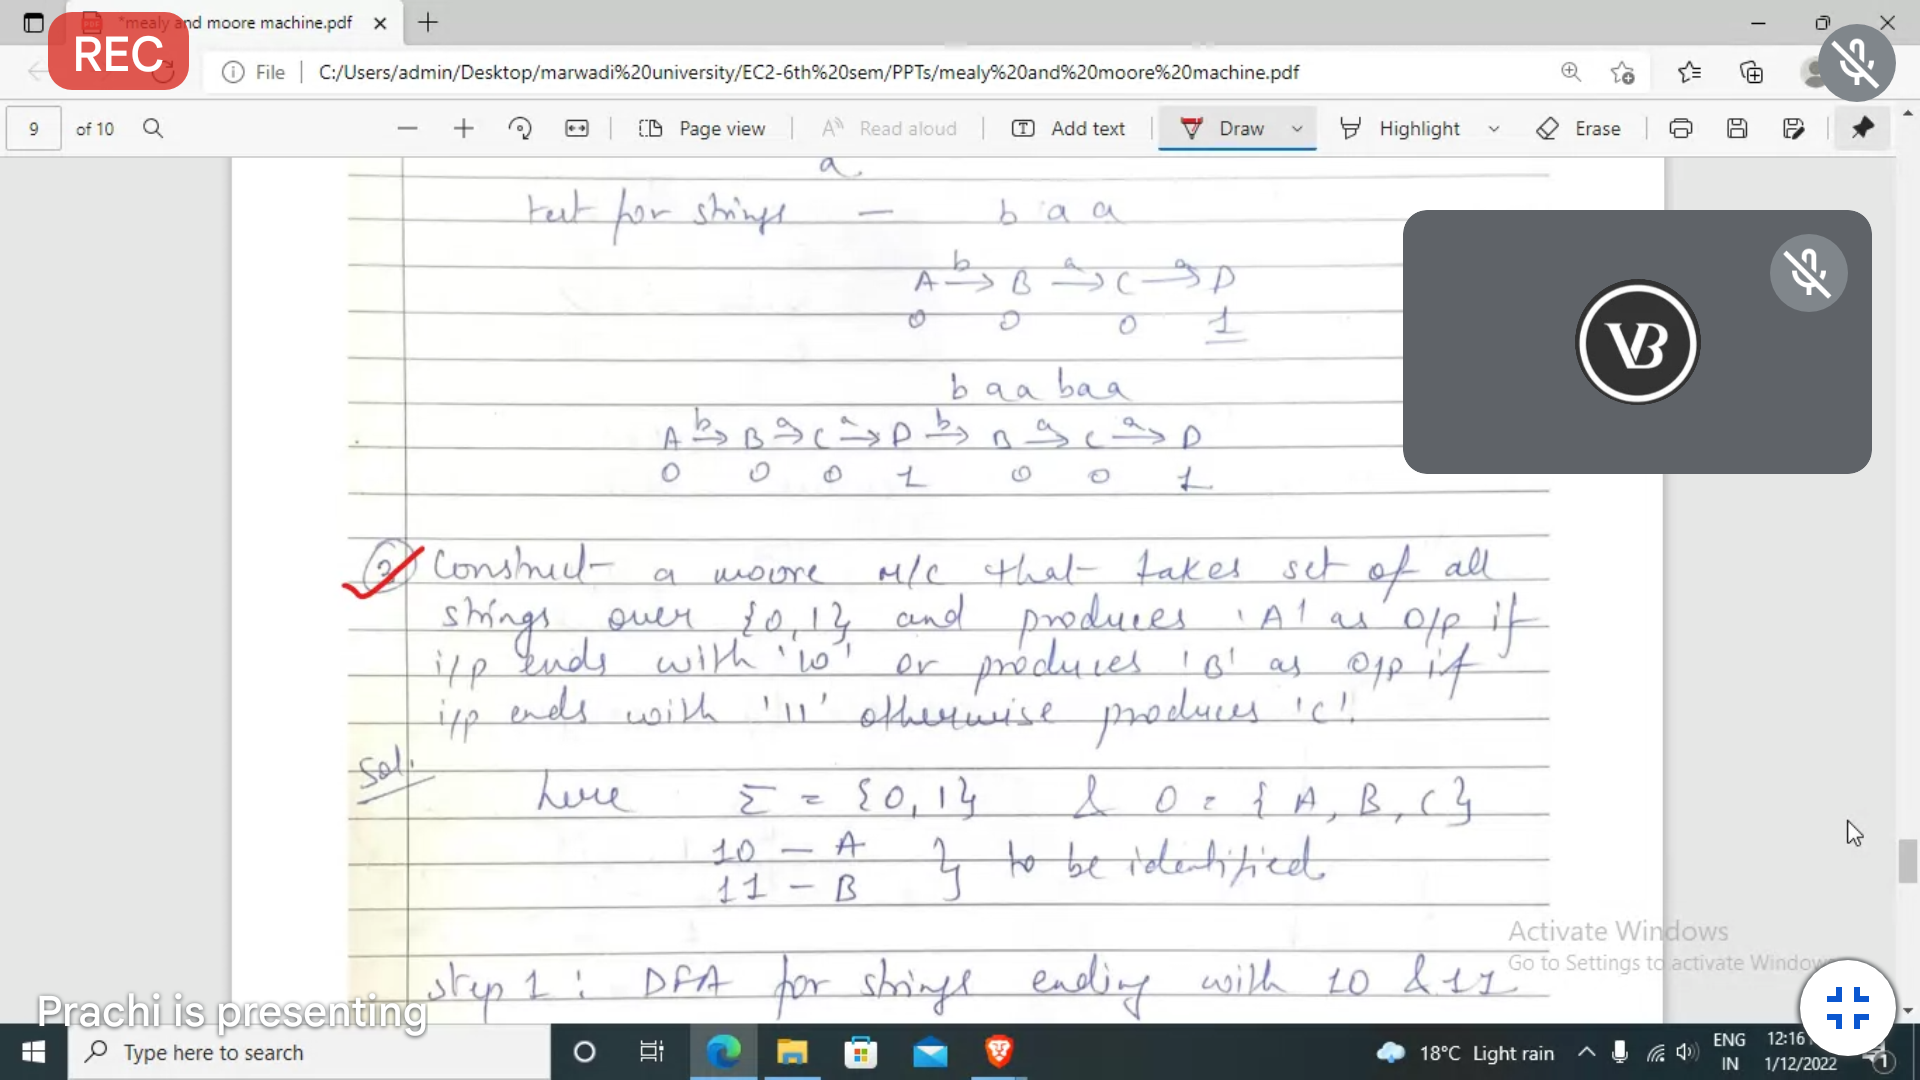 *mealy and moore machine.pdf
REC
File
C:/Users/admin/Desktop/marwadi%20university/EC2-6th%20sem/PPTs/mealy%20and%20moore%20machine.pdf
9 of 10
Page view
Read aloud
Add text
Draw
Highlight
Erase
a
test for strings — b a a
A b→ B a→ C a→ D
0 0 0 1
b a a b a a
A b→ B a→ C a→ D b→ B a→ C a→ D
0 0 0 1 0 0 1
VB
② Construct a moore m/c that takes set of all
strings over {0,1} and produces 'A' as o/p if
i/p ends with '10' or produces 'B' as o/p if
i/p ends with '11' otherwise produces 'C'.
Sol.
here Σ = {0,1} & O = {A, B, C}
10 – A
11 – B } to be identified
step 1 : DFA for strings ending with 10 & 11
Activate Windows
Go to Settings to activate Windows
Prachi is presenting
Type here to search
18°C Light rain
ENG
IN
12:16
1/12/2022
1